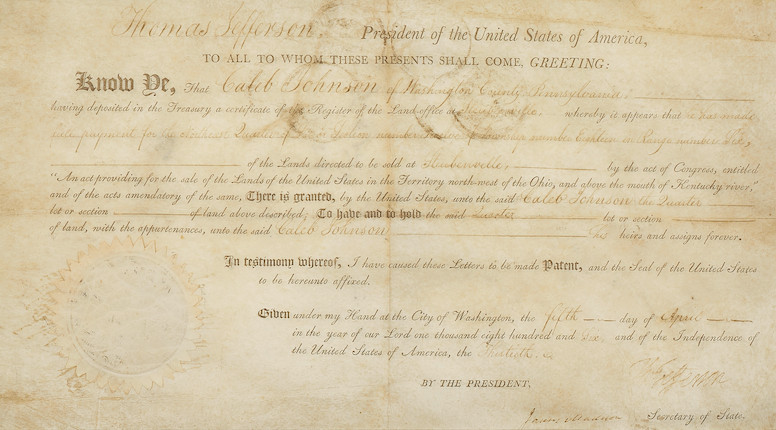 Thomas Jefferson, President of the United States of America,
TO ALL TO WHOM THESE PRESENTS SHALL COME, GREETING:
Know Ye, That Caleb Johnson of Washington County Pennsylvania
having deposited in the Treasury a certificate of the Register of the Land-office at Steubenville whereby it appears that he has made
full payment for the Quarter of Section number of Township number in Range number Six,
of the Lands directed to be sold at Steubenville, by the act of Congress, entitled
"An act providing for the sale of the Lands of the United States in the Territory north-west of the Ohio, and above the mouth of Kentucky river,"
and of the acts amendatory of the same, There is granted, by the United States, unto the said Caleb Johnson the Quarter
lot or section of land above described; To have and to hold the said Quarter lot or section
of land, with the appurtenances, unto the said Caleb Johnson his heirs and assigns forever.
In testimony whereof, I have caused these Letters to be made Patent, and the Seal of the United States
to be hereunto affixed.
Given under my Hand at the City of Washington, the fifth day of April
in the year of our Lord one thousand eight hundred and six and of the Independence of
the United States of America, the Thirtieth
Th Jefferson
BY THE PRESIDENT,
James Madison Secretary of State.